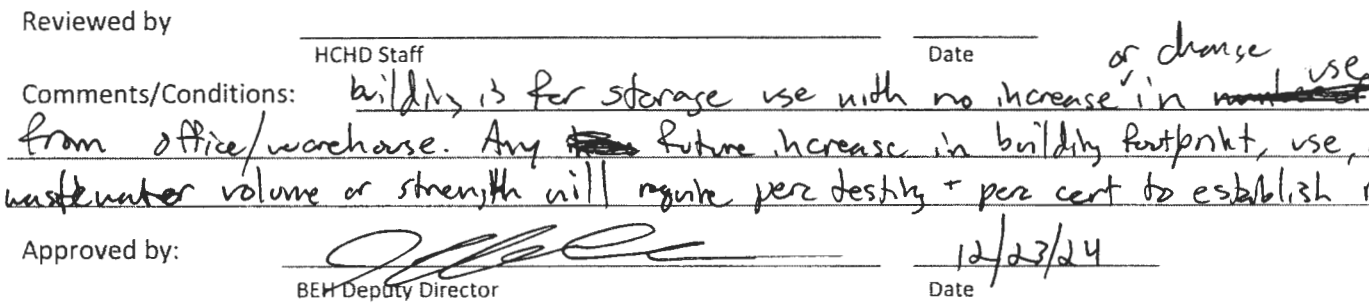 Reviewed by
HCHD Staff Date
or change
Comments/Conditions: building is for storage use with no increase in use
from office/warehouse. Any future increase in building footprint, use,
wastewater volume or strength will require perc testing + perc cert to establish
Approved by: 12/23/24
BEH Deputy Director Date